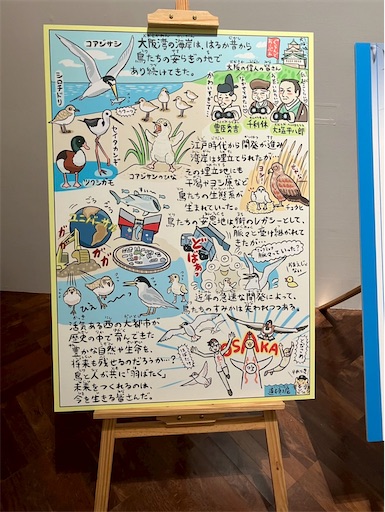 コアジサシ
大阪湾の海岸は、はるか昔から
鳥たちの安らぎの地で
あり続けてきた。
シロチドリ
大阪の偉人の皆さん
セイタカシギ
ツクシガモ
コアジサシのひな
豊臣秀吉
千利休
大塩平八郎
江戸時代から開発が進み
湾岸は埋立てられたが…
その埋立地にも
干潟やヨシ原など
鳥たちの生態系が
生まれていった。
チュウヒ
鳥たちの安息地は街のレガシーとして、
脈々と受け継がれて
きたが…
ガガガ
どばぁっ
近年の急速な開発によって、
鳥たちのすみかは失われつつある。
活気ある西の大都市が
歴史の中で育んできた
豊かな自然や生命を、
将来も残せるのだろうか…?
鳥と人が共に「羽ばたく」
未来をつくれるのは、
今を生きる皆さんだ。
OSAKA